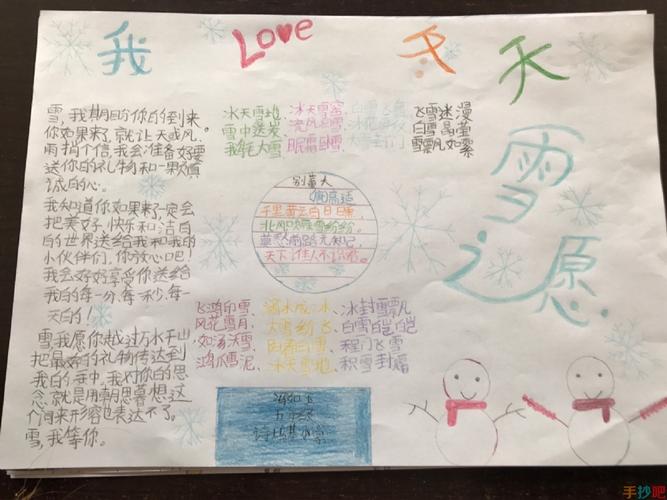 我 Love 冬天
雪之愿
雪,我期盼你的到来
你如果来了,就让天或风、
雨捎个信,我会准备好要
送你的礼物和一颗真
诚的心。
我知道你如果来了一定会
把美好、快乐和洁白
的世界送给我和我的
小伙伴们,你放心吧!
我会好好享受你送给
我的每一分,每一秒,每一
天的!
雪我愿你越过万水千山
把最好的礼物传达到
我的手中,我对你的思
念,就是用朝思暮想这
个词来形容也表达不了。
雪,我等你。
冰天雪地、冰天雪窖、白雪
雪中送炭、
我能大雪、眠霜卧雪、
飞雪迷漫
白雪晶莹
雪飘如絮
别董大
高适
千里黄云白日曛,
北风吹雁雪纷纷。
莫愁前路无知己,
天下谁人不识君。
飞鸿印雪、滴水成冰、冰封雪飘
风花雪月、大雪纷飞、白雪皑皑
如汤沃雪、阳春白雪、程门飞雪
鸿爪雪泥、冰天雪地、积雪封霜
手抄吧